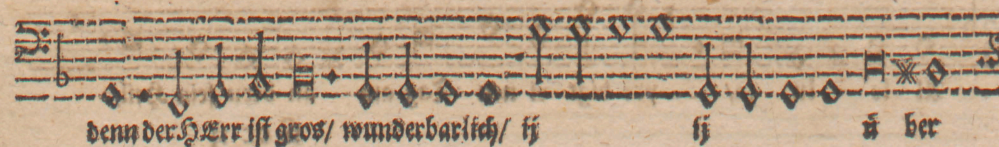 denn der HErr ist gros/ wunderbarlich/ ij ij ü ber